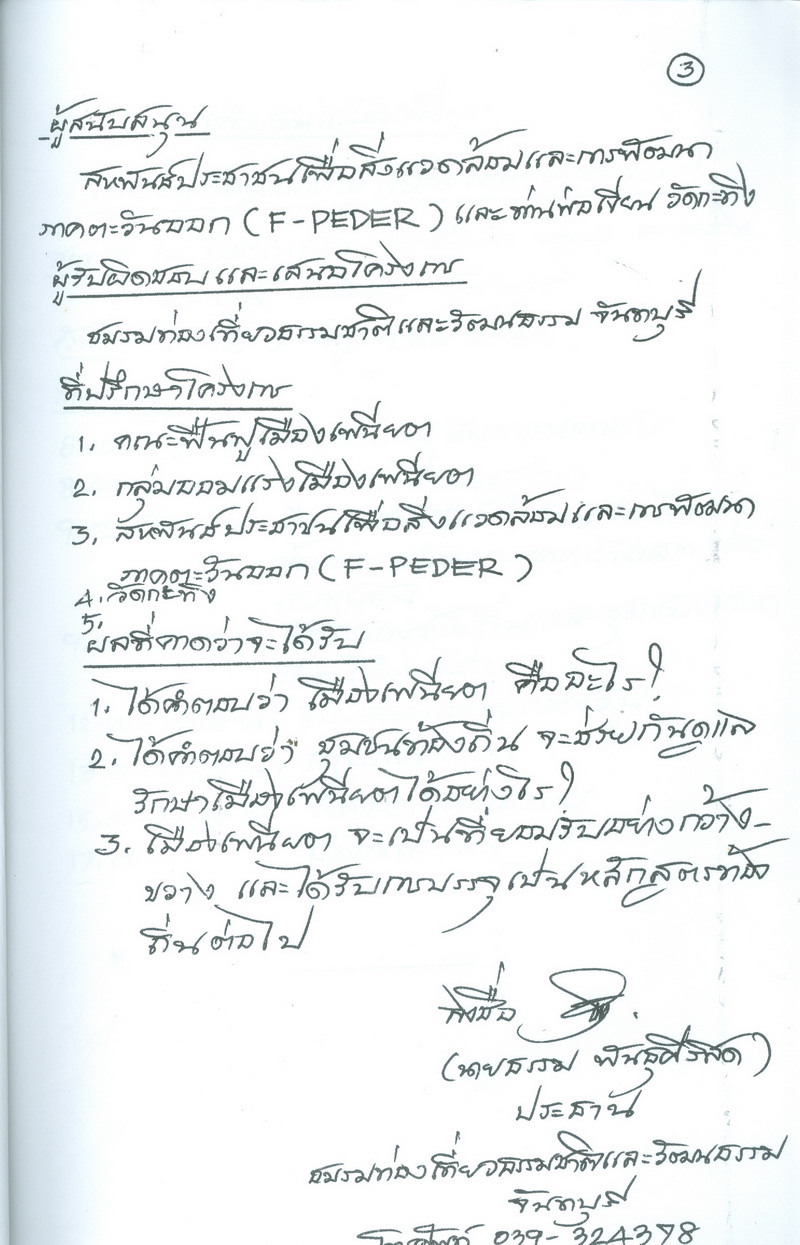 3
ผู้สนับสนุน
สหพันธ์ประชาชนเพื่อสิ่งแวดล้อมและการพัฒนา
ภาคตะวันออก (F-PEDER) และท่านพ่อเขียน วัดกะทิง
ผู้รับผิดชอบ และเสนอโครงการ
ชมรมท่องเที่ยวธรรมชาติและวัฒนธรรม จันทบุรี
ที่ปรึกษาโครงการ
1. คณะฟื้นฟูเมืองเพนียต
2. กลุ่มออมแรงเมืองเพนียต
3. สหพันธ์ประชาชนเพื่อสิ่งแวดล้อมและการพัฒนา
ภาคตะวันออก (F-PEDER)
4. วัดกะทิง
5.
ผลที่คาดว่าจะได้รับ
1. ได้คำตอบว่า เมืองเพนียต คืออะไร?
2. ได้คำตอบว่า ชุมชนท้องถิ่น จะช่วยกันดูแล
รักษาเมืองเพนียตได้อย่างไร?
3. เมืองเพนียต จะเป็นที่ยอมรับอย่างกว้าง-
ขวาง และได้รับการบรรจุเป็นหลักสูตรท้อง
ถิ่นต่อไป
ลงชื่อ
(นายธรรม พันธุศิริสด)
ประธาน
ชมรมท่องเที่ยวธรรมชาติและวัฒนธรรม
จันทบุรี
โทรศัพท์ 039-324378